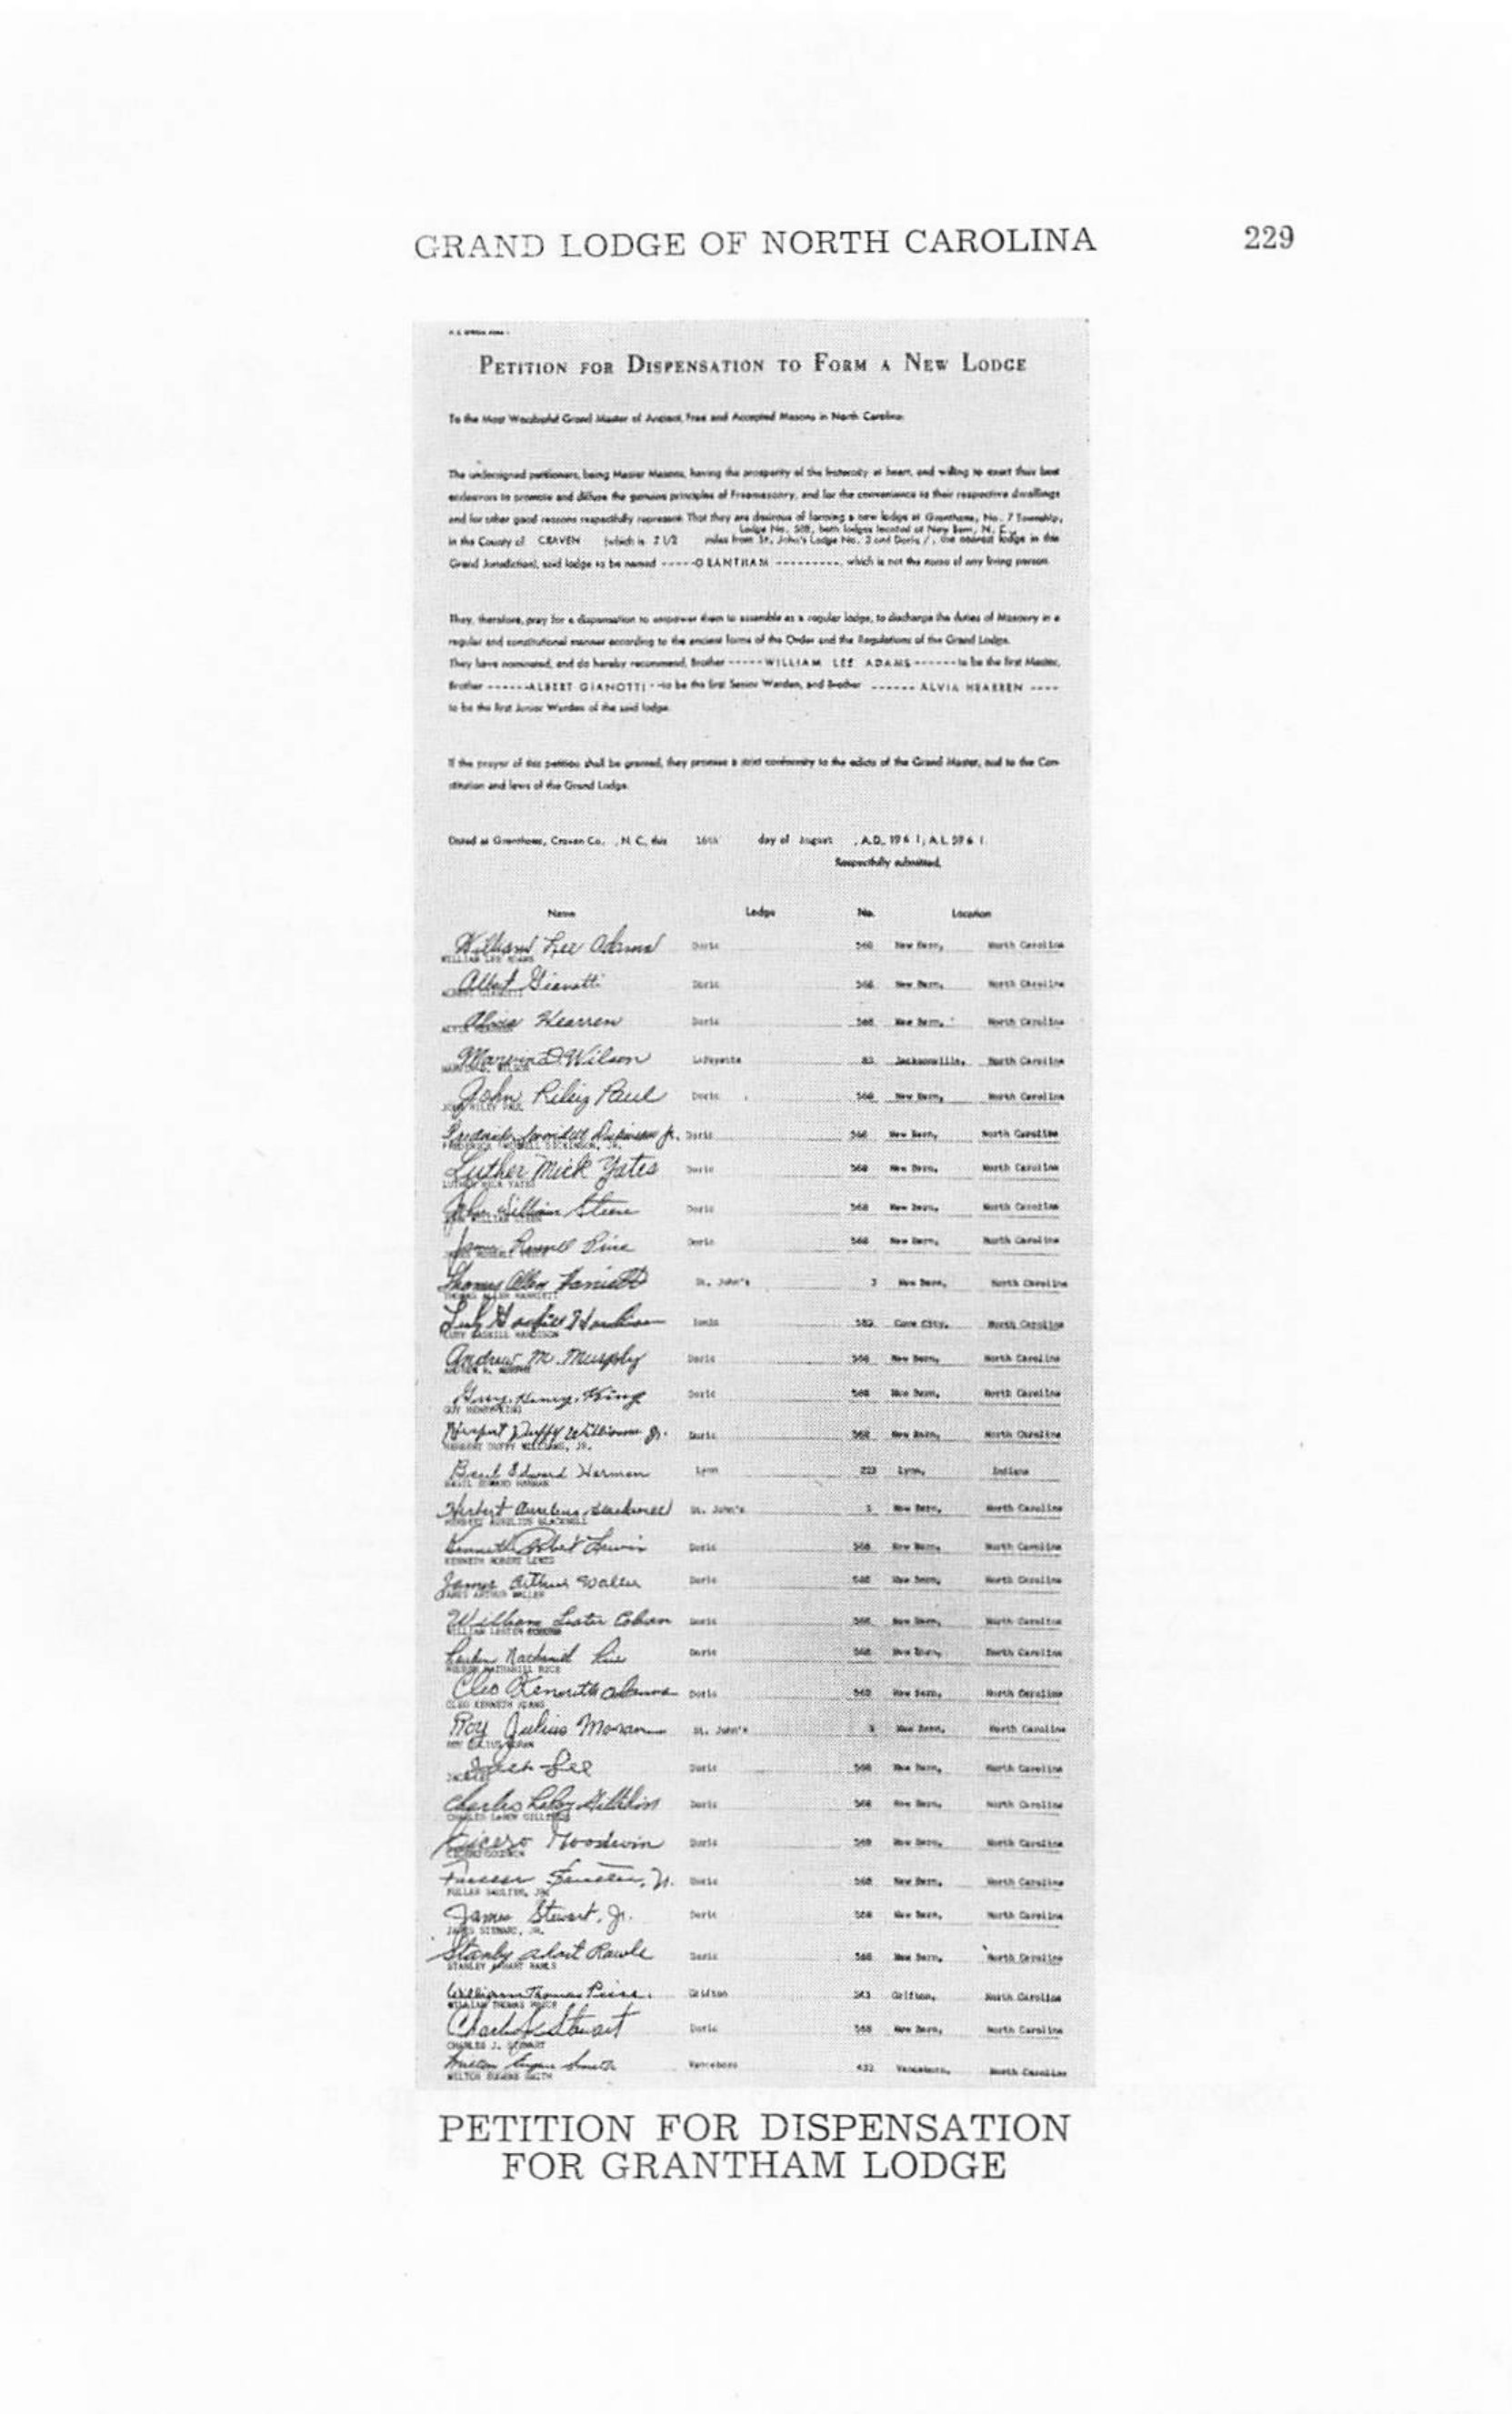 GRAND LODGE OF NORTH CAROLINA 229
PETITION FOR DISPENSATION TO FORM A NEW LODGE
To the Most Worshipful Grand Master of Ancient, Free and Accepted Masons in North Carolina:
The undersigned petitioners, being Master Masons, having the prosperity of the fraternity at heart, and willing to exert their best
endeavors to promote and diffuse the genuine principles of Freemasonry, and for the convenience to their respective dwellings
and for other good reasons respectfully represent: That they are desirous of forming a new lodge at Granthams, No. 7 Township,
Lodge No. 568, both lodges located at New Bern, N. C.,
in the County of CRAVEN (which is 7 1/2 miles from St. John's Lodge No. 3 and Doric /, the nearest lodge in this
Grand Jurisdiction), said lodge to be named -----GRANTHAM ---------, which is not the name of any living person.
They, therefore, pray for a dispensation to empower them to assemble as a regular lodge, to discharge the duties of Masonry in a
regular and constitutional manner according to the ancient forms of the Order and the Regulations of the Grand Lodge.
They have nominated, and do hereby recommend, Brother -----WILLIAM LEE ADAMS------to be the first Master,
Brother ------ALBERT GIANOTTI --to be the first Senior Warden, and Brother ------ ALVIA HEARREN ----
to be the first Junior Warden of the said lodge.
If the prayer of this petition shall be granted, they promise a strict conformity to the edicts of the Grand Master, and to the Con-
stitution and laws of the Grand Lodge.
Dated at Granthams, Craven Co., N. C., this 16th day of August, A.D. 1961; A.L. 5961
Respectfully submitted,
Name Lodge No. Location
William Lee Adams Doric 568 New Bern, North Carolina
WILLIAM LEE ADAMS
Albert Gianotti Doric 568 New Bern, North Carolina
Alvia Hearren Doric 568 New Bern, North Carolina
Marvin D. Wilson LaFayette 83 Jacksonville, North Carolina
John Riley Paul Doric 568 New Bern, North Carolina
JOHN RILEY PAUL
Doric 568 New Bern, North Carolina
Luther Mick Yates Doric 568 New Bern, North Carolina
LUTHER MICK YATES
John William Steen Doric 568 New Bern, North Carolina
James Russell Doric 568 New Bern, North Carolina
Thomas Allen Harriett St. John's 3 New Bern, North Carolina
THOMAS ALLEN HARRIETT
Cove City, North Carolina
GASKILL HARDISON
Andrew M. Murphy Doric 568 New Bern, North Carolina
Guy Henry King Doric 568 New Bern, North Carolina
GUY HENRY KING
Herbert Duffy Williams Jr. Doric 568 New Bern, North Carolina
HERBERT DUFFY WILLIAMS, JR.
Basil Edward Harman Lynn 223 Lynn, Indiana
BASIL EDWARD HARMAN
Herbert Aurelius Blackwell St. John's 3 New Bern, North Carolina
HERBERT AURELIUS BLACKWELL
Kenneth Robert Lewis Doric 568 New Bern, North Carolina
KENNETH ROBERT LEWIS
James Arthur Waller Doric 568 New Bern, North Carolina
JAMES ARTHUR WALLER
William Lester Doric 568 New Bern, North Carolina
WILLIAM LESTER
Nathaniel Rice Doric 568 New Bern, North Carolina
Cleo Kenneth Adams Doric 568 New Bern, North Carolina
CLEO KENNETH ADAMS
Roy Julius Moran St. John's 3 New Bern, North Carolina
ROY JULIUS MORAN
Jack Lee Doric 568 New Bern, North Carolina
Charles Doric 568 New Bern, North Carolina
Cicero Goodwin Doric 568 New Bern, North Carolina
CICERO GOODWIN
Doric 568 New Bern, North Carolina
James Stewart, Jr. Doric 568 New Bern, North Carolina
Stanley Rawls Doric 568 New Bern, North Carolina
STANLEY RAWLS
William Thomas Grifton Grifton, North Carolina
WILLIAM THOMAS
Charles J. Stewart Doric 568 New Bern, North Carolina
CHARLES J. STEWART
Smith Vanceboro 433 Vanceboro, North Carolina
EUGENE SMITH
PETITION FOR DISPENSATION
FOR GRANTHAM LODGE